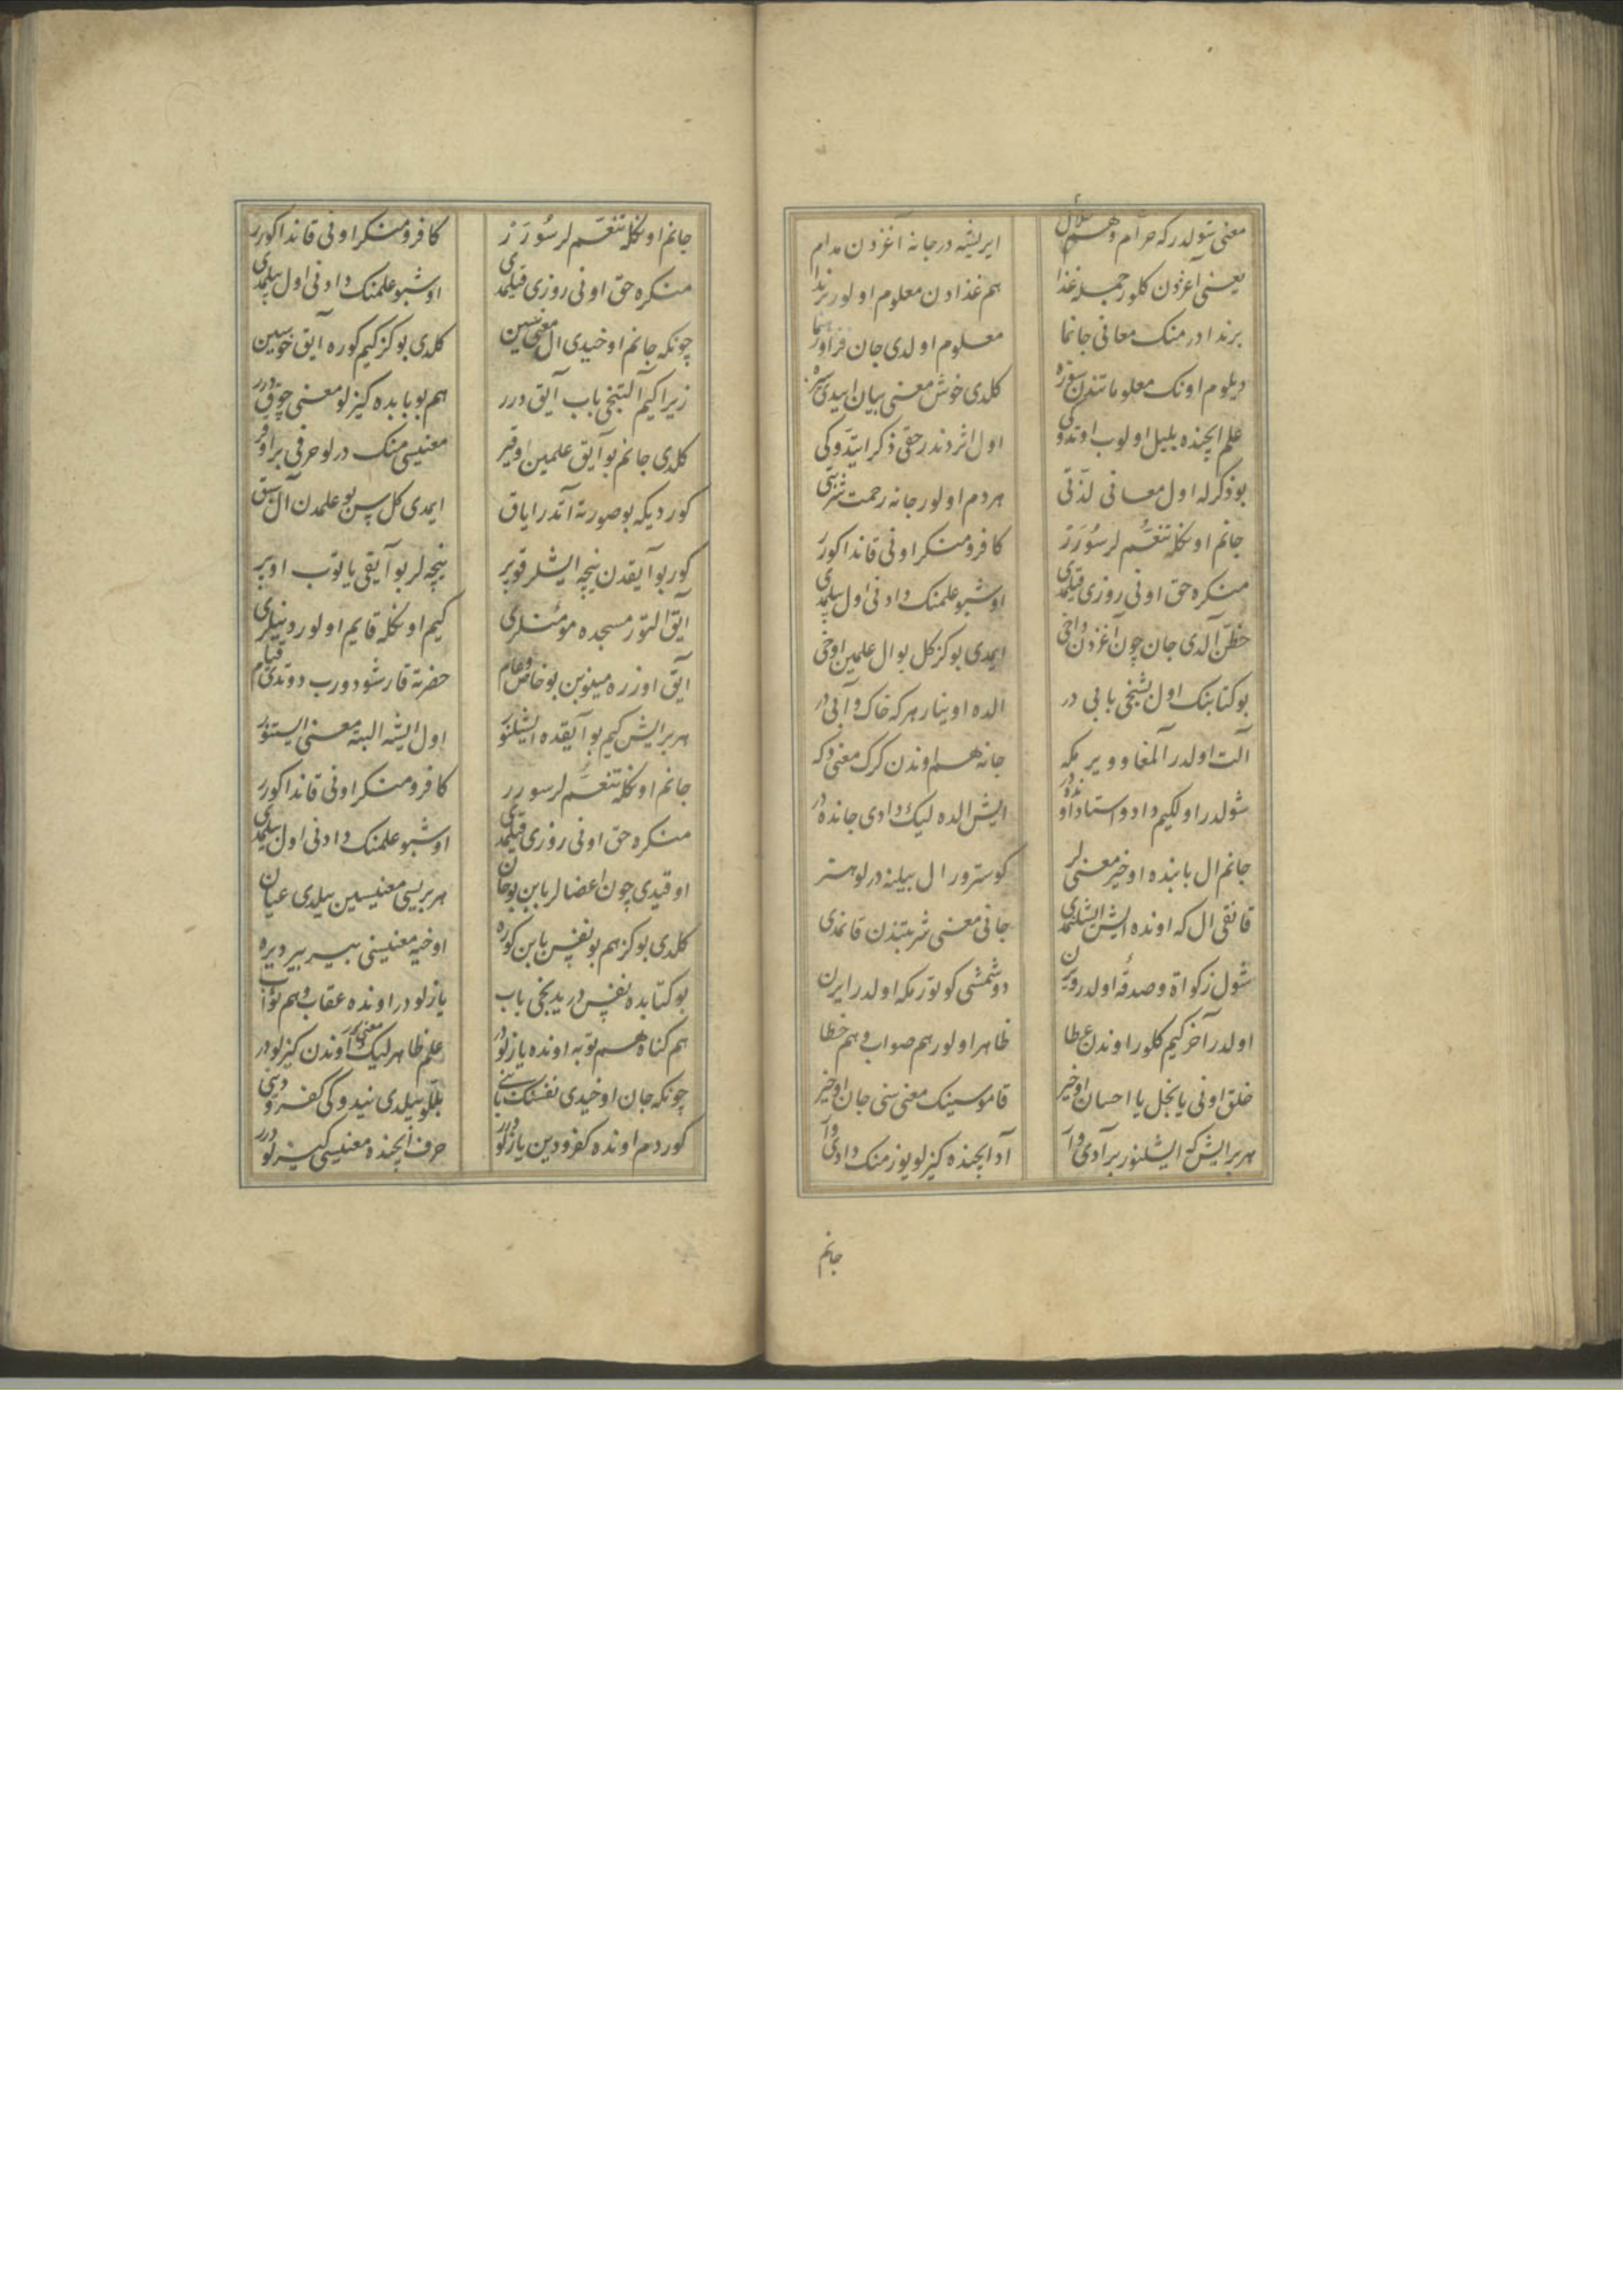 معنی شولدر که حرام و هم حلال ایریشه در جانه آغزدن مدام
یعنی آغزدن کلور جمله غذا هم غذادن معلوم اولور بزندا
برندا در منک معانی جانما معلوم اولدی جان فزا و رهنما
دیلوم اونک معلوماتندن سوزه کلدی خوش معنی بیان ایدی سزه
علم ایچنده بلبل اولوب اوتدوکی اول اثردندر حقی ذکر ایتدوکی
بو ذکرله اول معانی لذتی هردم اولور جانه رحمت شربتی
جانم اونکله تنعم لر سورر کافر و منکر اونی قاندا کورر
منکره حق اونی روزی قیلمدی اوشبو علمنک دادنی اول بیلمدی
حظن آلدی جان چون آغزدن داخی ایمدی بو کز کل بو ال علمین اوخی
بو کتابنک اول بشنجی بابی در الده اوینار هر که خاک و آبی در
آلت اولدر آلمغا و ویرمکه جانه هم اوندن کرک معنی دکه
شولدر اولکیم داد و استاد اونده در ایش الده لیک دادی جانده در
جانم ال بابنده اوخیر معنی لر کوسترور ال بیلینه درلو هنر
قانقی ال که اونده ایش ایشلنمدی جانی معنی شربتندن قانمدی
شول زکواة و صدقه اولدر ویرن دوشمشی کوتورمکه اولدر ایرن
اولدر آخر کیم کلور اوندن عطا ظاهر اولور هم صواب و هم خطا
خلق اونی یا بخل یا احسان اوخیر قاموسینک معنی سنی جان اوخیر
هر بر ایش که ایشلنور بر آدی وار آد ایچنده کیزلو یوز منک دادی وار
جانم
جانم اونکله تنعم لر سورر کافر و منکر اونی قاندا کورر
منکره حق اونی روزی قیلمدی اوشبو علمنک دادنی اول بیلمدی
چونکه جانم اوخیدی ال معنیسین کلدی بو کز کیم کوره ایق خوسین
زیرا کیم آلتنجی باب آیق درر هم بو بابده کیزلو معنی چوق درر
کلدی جانم بو آیق علمین اوقیر معنیسی منک درلو حرفی بر اوقر
کور دیکه بو صورته آتدر ایاق ایمدی کل سن بو علمدن آل سبق
کور بو آیقدن نیچه ایشلر قوپر نیچه لر بو آیقی یا توب اوپر
آیق التور مسجده مؤمنلری کیم اونکله قایم اولور دینلری
آیق اوزره میلونین بو خاص و عام حضرته قارشو دورب دوتدی قیام
هر بر ایش کیم بو آیقده ایشلنور اول ایشه البته معنی ایستنور
جانم اونکله تنعم لر سورر کافر و منکر اونی قاندا کورر
منکره حق اونی روزی قیلمدی اوشبو علمنک دادنی اول بیلمدی
اوقیدی چون اعضالر بابن بو جان هر بریسی معنیسین بیلدی عیان
کلدی بو کز هم بو نفس بابن کوره اوخیه معنیسینی بیر بیر دیره
بو کتابده نفس در یدنجی باب یازلودر اونده عقاب و هم ثواب
هم کناه هم توبه اونده یازلودر علم ظاهر لیک معنی اوندن کیزلودر
چونکه جان اوخیدی نفسنک بابنی بللو بیلدی نیدوکی کفر و دینی
کوردم اونده کفر و دین یازلودرر حرف ایچنده معنیسی کیزلودرر